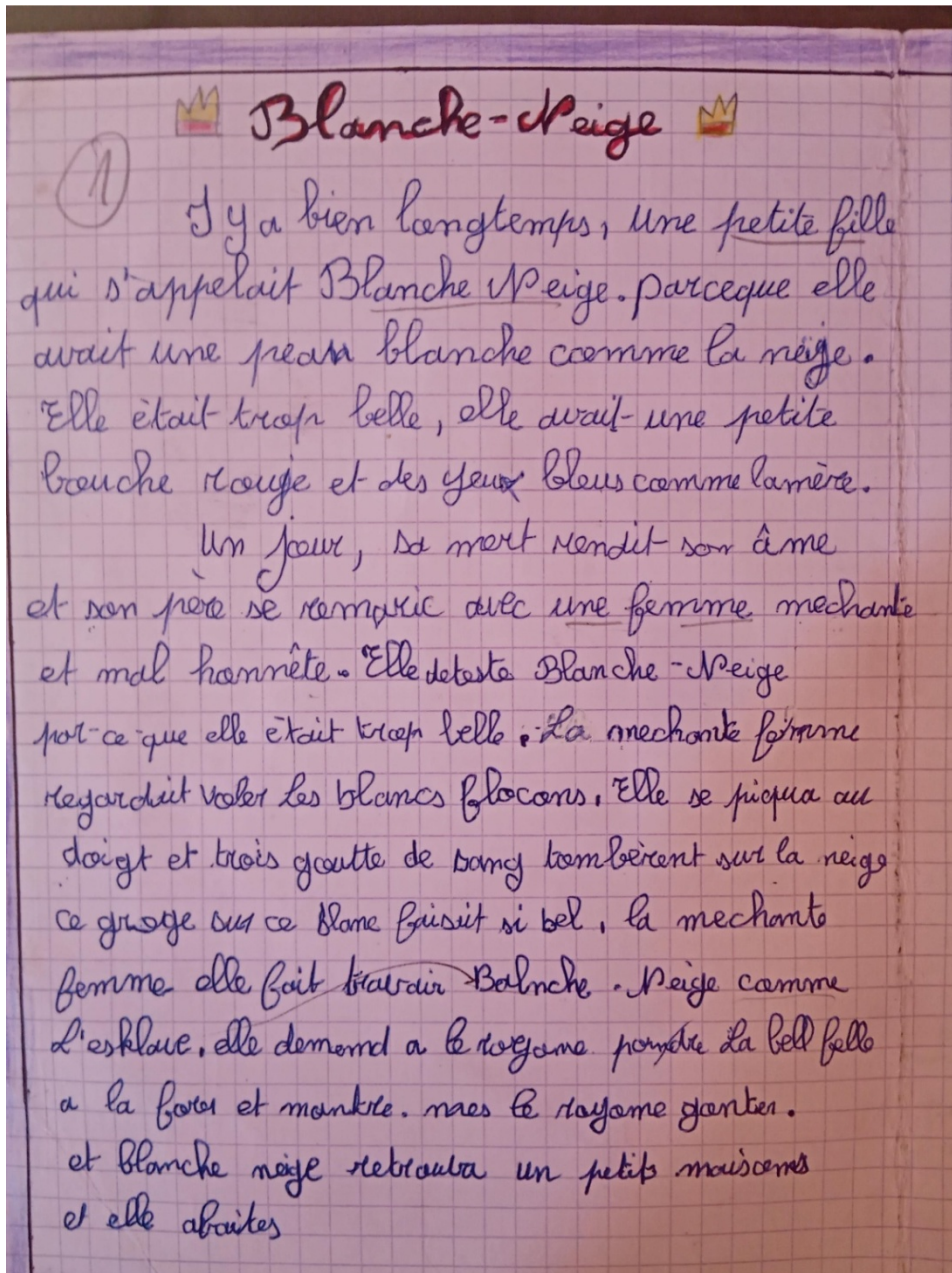 Blanche-Neige
1
I y a bien longtemps, une petite fille
qui s'appelait Blanche Neige. parceque elle
avait une peau blanche comme la neige.
Elle était trop belle, elle avait une petite
bouche rouge et des yeux bleus comme lamère.
Un jour, sa mort rendit son âme
et son père se remarie avec une femme mechante
et mal honnête. Elle deteste Blanche-Neige
par-ce-que elle était trop belle. La mechante femme
regardait voler les blancs flocons, Elle se piqua au
doigt et trois goutte de sang tombèrent sur la neige
ce groge sur ce blanc faisait si bel, la mechante
femme elle fait Balnche-Neige comme
L'esklave, elle demand a le royame la bell felle
a la et mankre. maes le royame ganter.
et Blanche neige retrouba un petits maiscens
et elle abaites